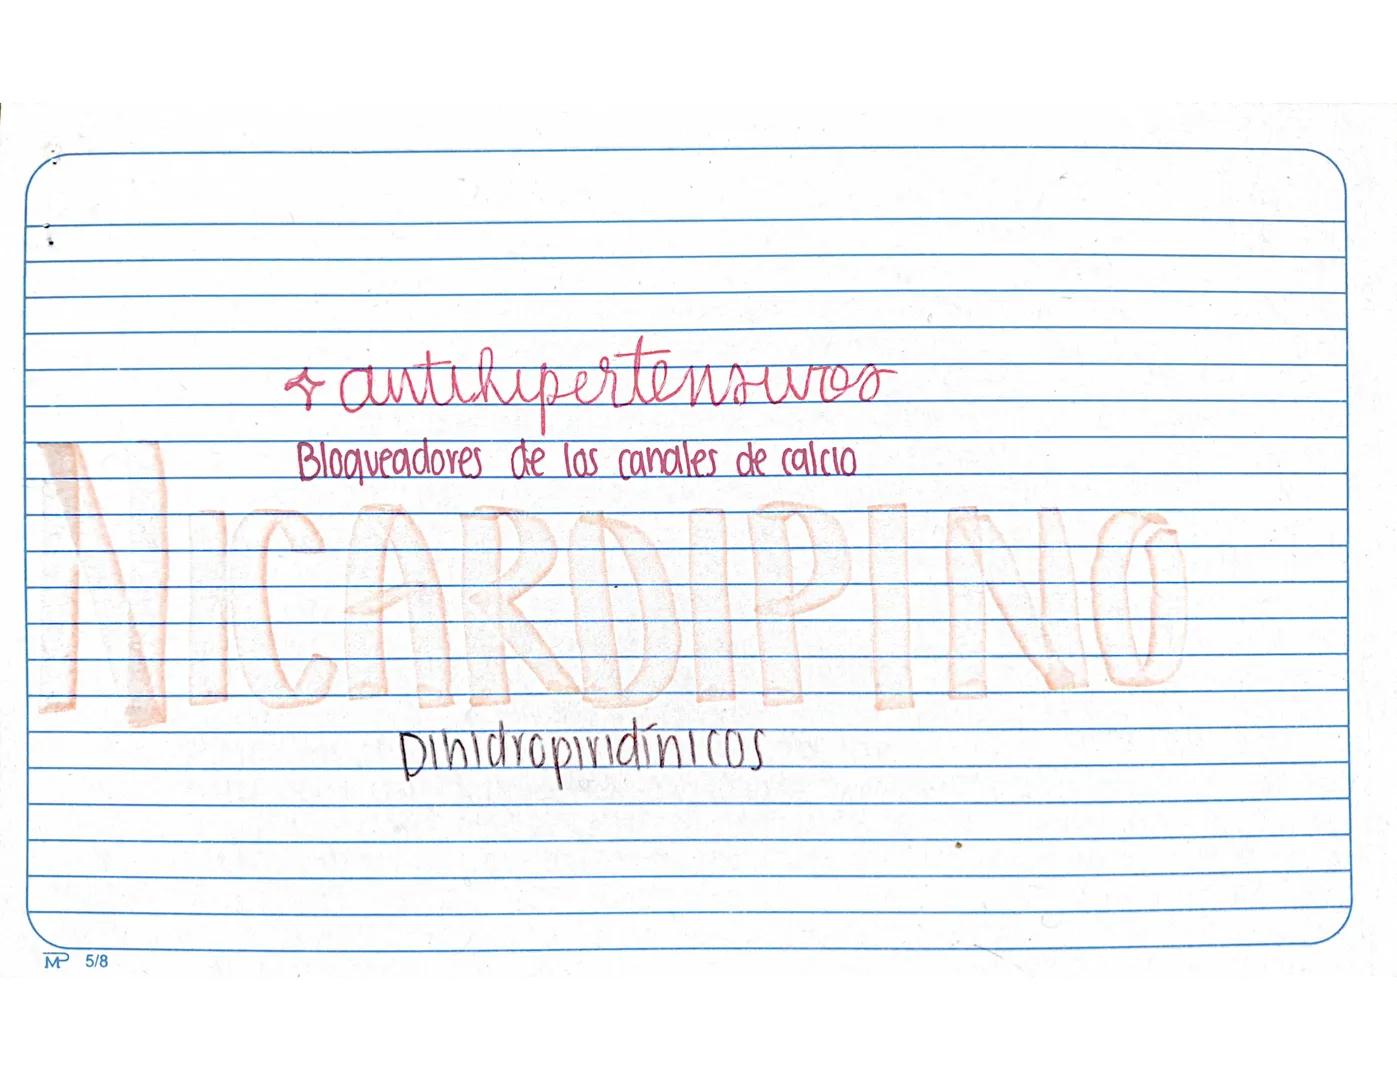 ✧ antihipertensivos
Bloqueadores de los canales de calcio
NICARDIPINO
Dihidropiridínicos
MP 5/8